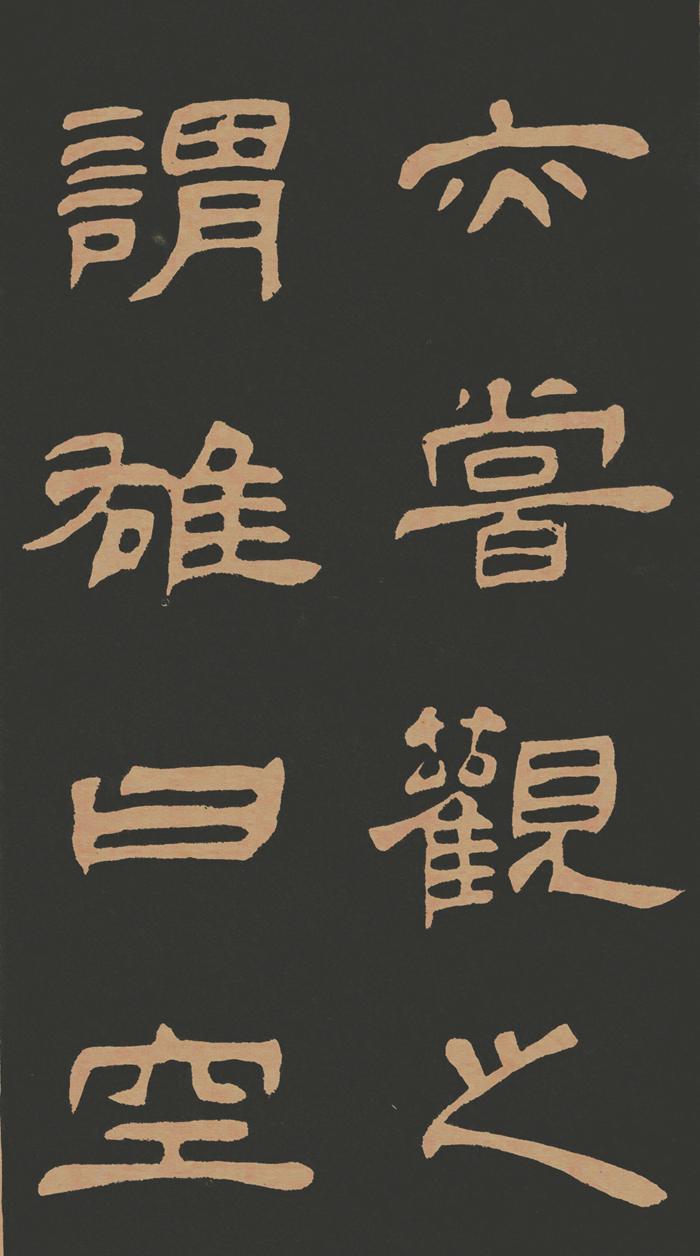 亦嘗觀之
謂雖曰空